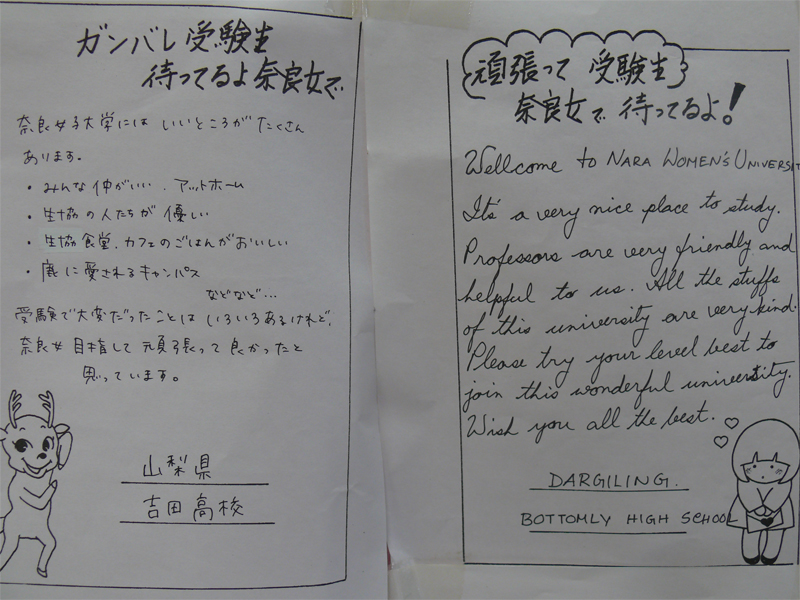 ガンバレ受験生
待ってるよ奈良女で
奈良女子大学には いいところが たくさん
あります。
・みんな仲がいい、アットホーム
・生協の人たちが優しい
・生協食堂、カフェのごはんがおいしい
・鹿に愛されるキャンパス
などなど…
受験で大変だったことは いろいろあるけれど、
奈良女目指して頑張って良かったと
思っています。
山梨県
吉田高校
頑張って 受験生
奈良女で 待ってるよ!
Wellcome to NARA WOMEN'S UNIVERSIT
It's a very nice place to study.
Professors are very friendly and
helpful to us. All the stuffs
of this university are very kind.
Please try your level best to
join this wonderful university.
Wish you all the best.
DARGILING.
BOTTOMLY HIGH SCHOOL